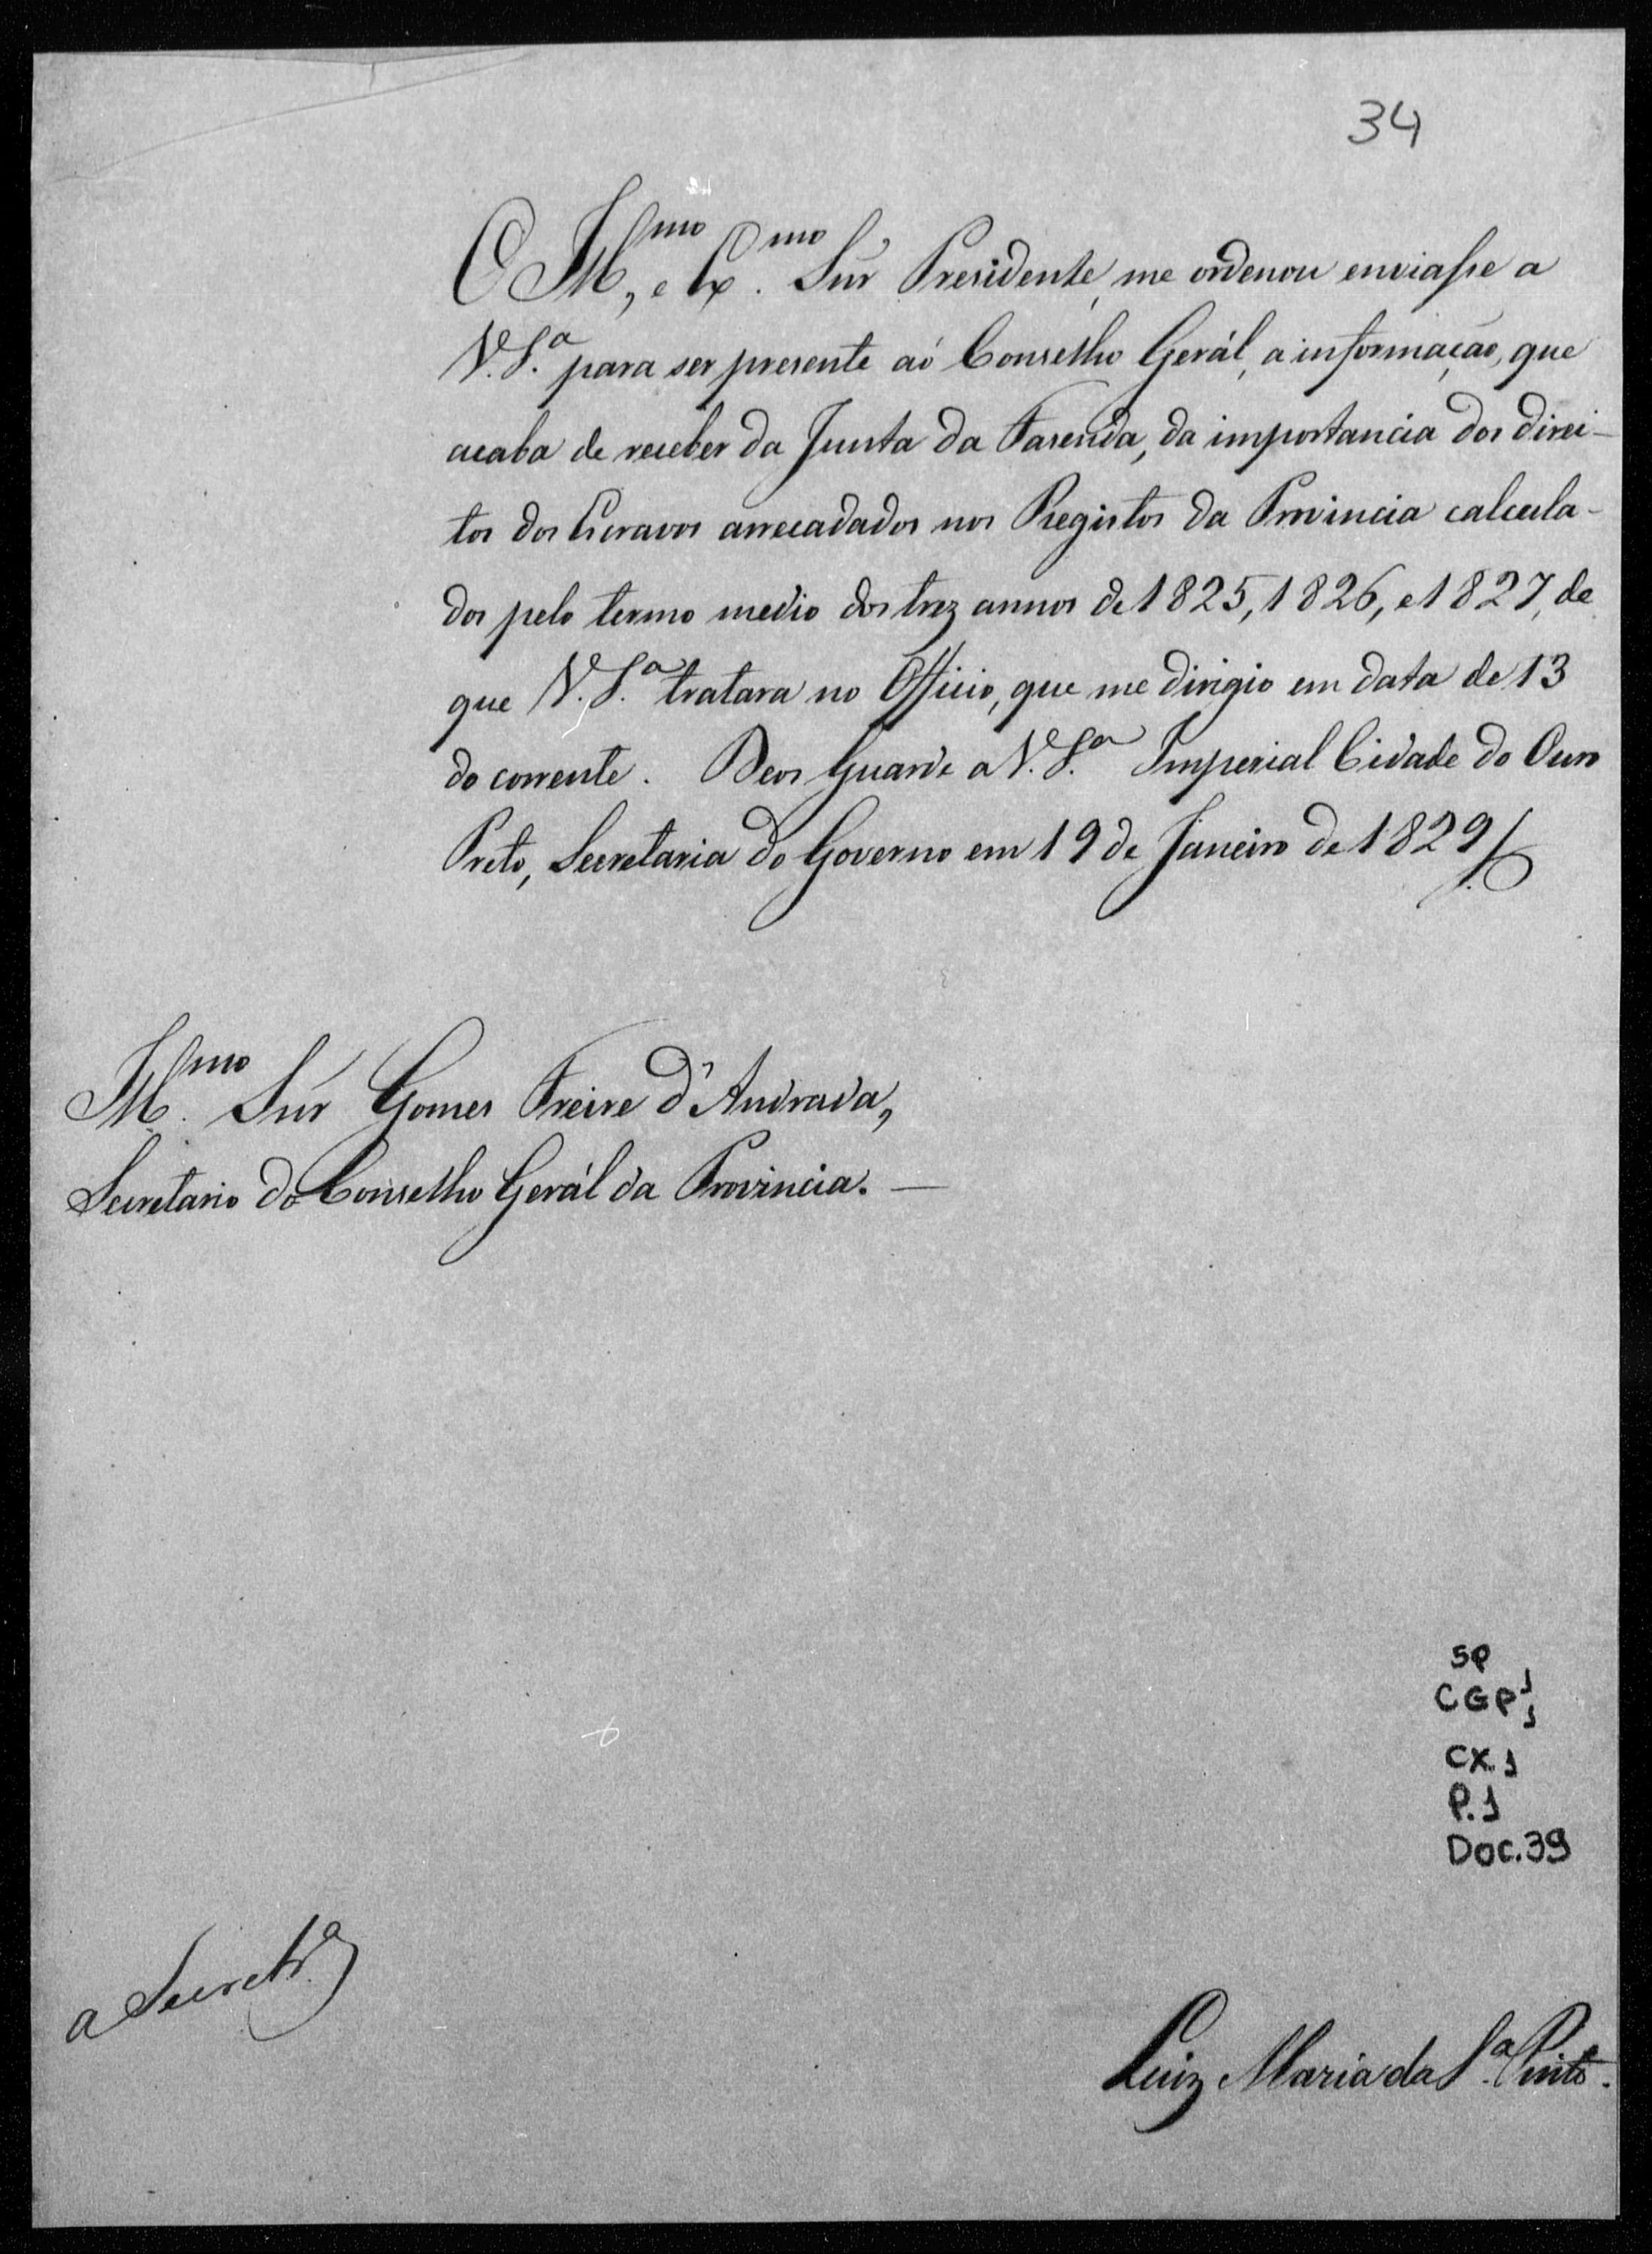 34
O Ill.mo, e Ex.mo Snr Presidente, me ordenou enviasse a
V. S.a para ser presente aó Conselho Gerál, a informação, que
acaba de receber da Junta da Fasenda, da importancia dos direi-
tos dos Escravos arrecadados nos Registos da Provincia calcula-
dos pelo termo medio dos trez annos de 1825, 1826, e 1827, de
que V. S.a tratara no Officio, que me dirigio em data de 13
do corrente. Deos Guarde a V. S.a Imperial Cidade do Ouro
Preto, Secretaria do Governo em 19 de Janeiro de 1829
Ill.mo Snr Gomes Freire d'Andrada,
Secretario do Conselho Gerál da Provincia.—
SP
CGP 1
1
CX. 1
P. 1
DOC. 39
a Secretr.a
Luiz Maria da S.a Pinto.